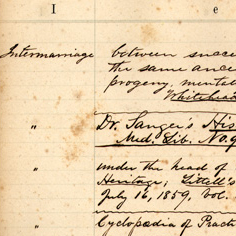 I e
Intermarriage between
the same
progeny,
Whitehead
" Dr. Sanger's His
Med. Lib. No. 9
" under the head of
Heritage; Littell's
July 16, 1859, Vol.
" Cyclopædia of Pract